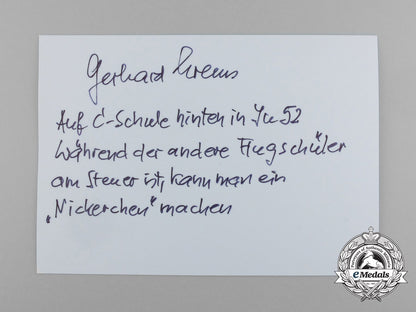 Gerhard Krems
Auf C-Schule hinten in Ju 52
Während der andere Flugschüler
am Steuer ist, kann man ein
„Nickerchen" machen
eMedals